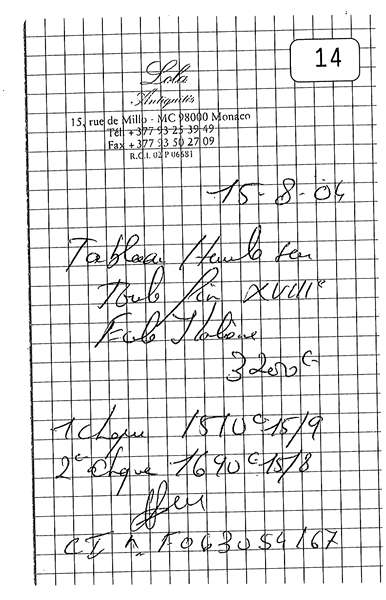 14
Lola
Antiquités
15, rue de Millo - MC 98000 Monaco
Tél. +377 93 25 39 49
Fax +377 93 50 27 09
R.C.I. 02 P 06681
15-8-04
Tableau Huile sur
Toile fin XVIIIe
Ecole Italienne
3200€
1 Chèque 1510€ 15/9
2e Chèque 1690€ 15/8
CI n° F063054167